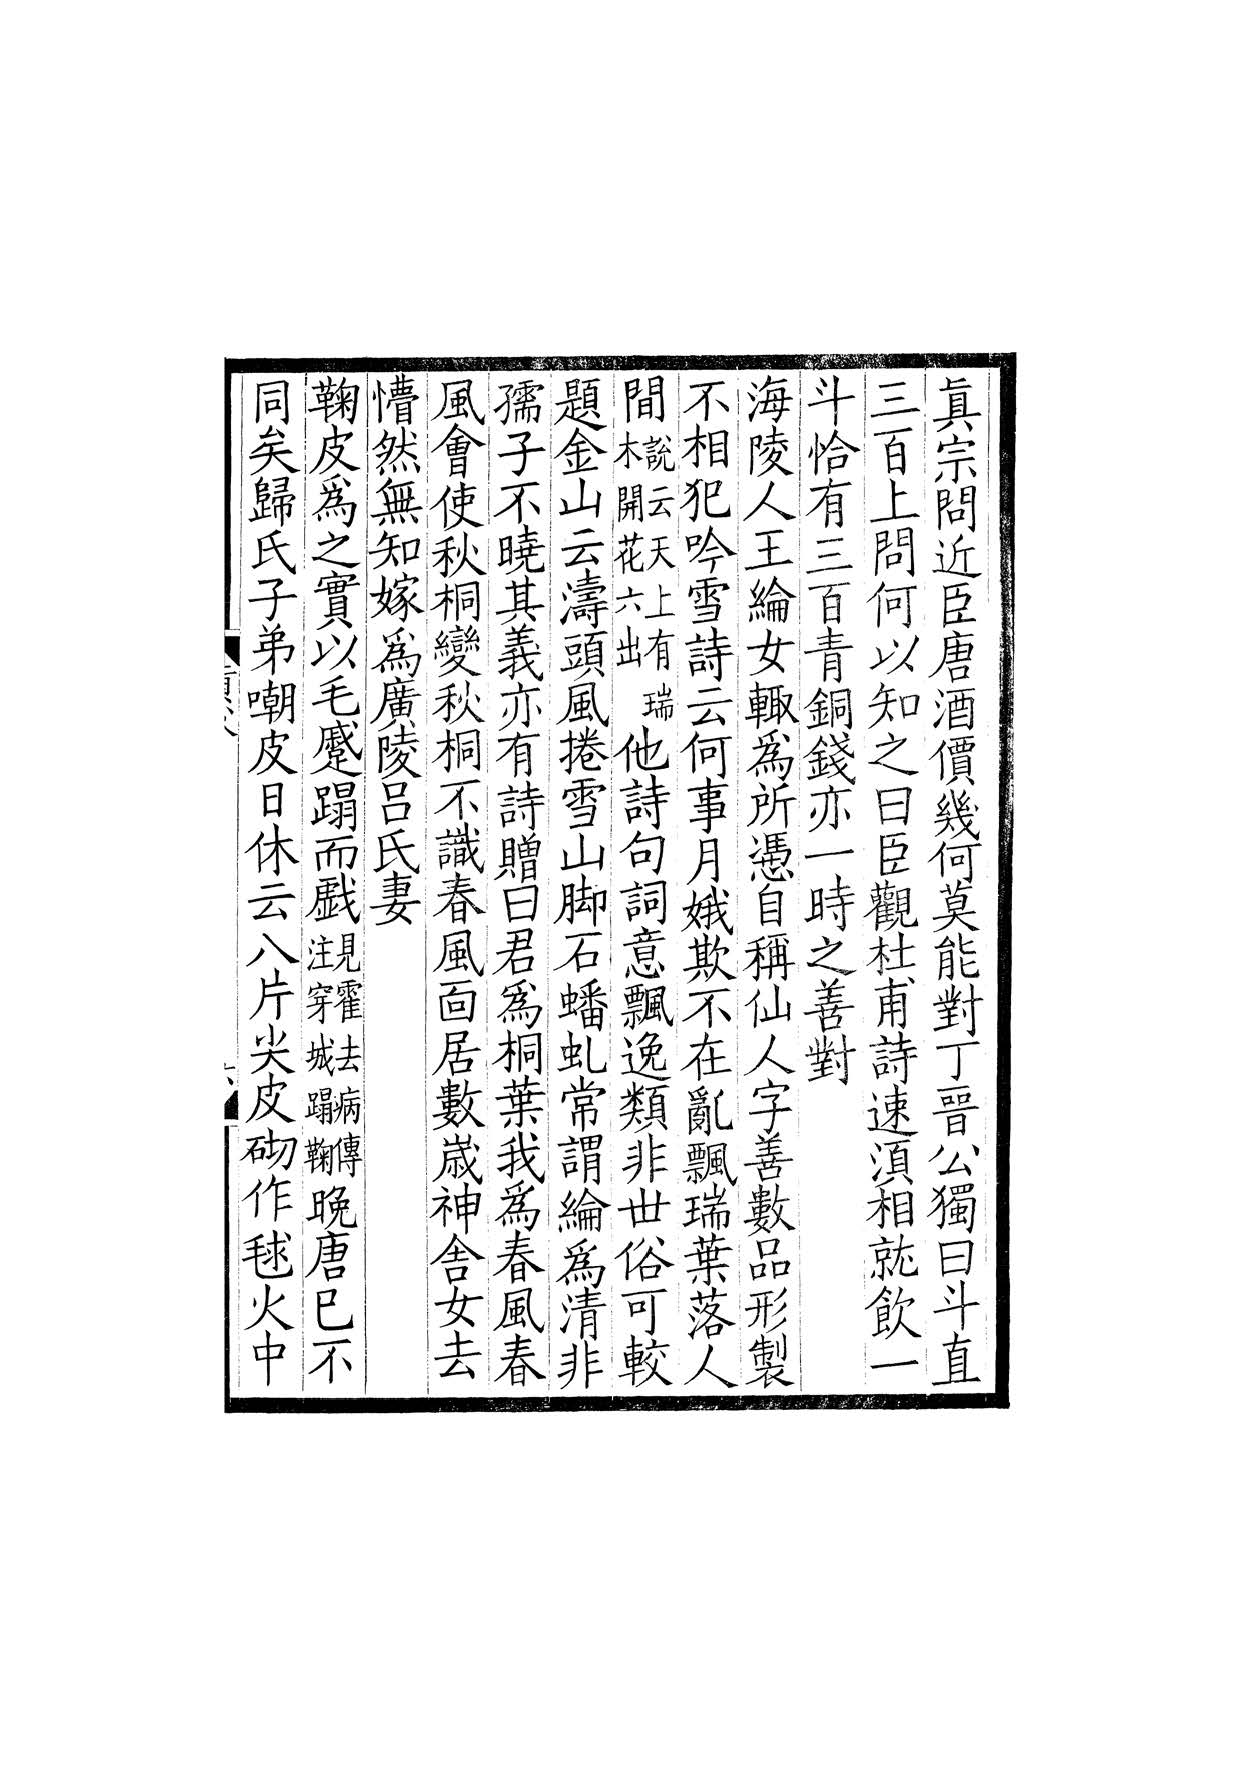 眞宗問近臣唐酒價幾何莫能對丁晉公獨曰斗直
三百上問何以知之曰臣觀杜甫詩速湏相就飲一
斗恰有三百青銅錢亦一時之善對
海陵人王綸女輙爲所憑自稱仙人字善數品形製
不相犯吟雪詩云何事月娥欺不在亂飄瑞葉落人
間說云天上有瑞木開花六出他詩句詞意飄逸類非世俗可較
題金山云濤頭風捲雪山脚石蟠虬常謂綸爲清非
孺子不曉其義亦有詩贈曰君爲桐葉我爲春風春
風會使秋桐變秋桐不識春風靣居數歲神舍女去
懵然無知嫁爲廣陵呂氏妻
鞠皮爲之實以毛蹙蹋而戲見霍去病傳注穿城蹋鞠晚唐已不
同矣歸氏子弟嘲皮日休云八片尖皮砌作毬火中